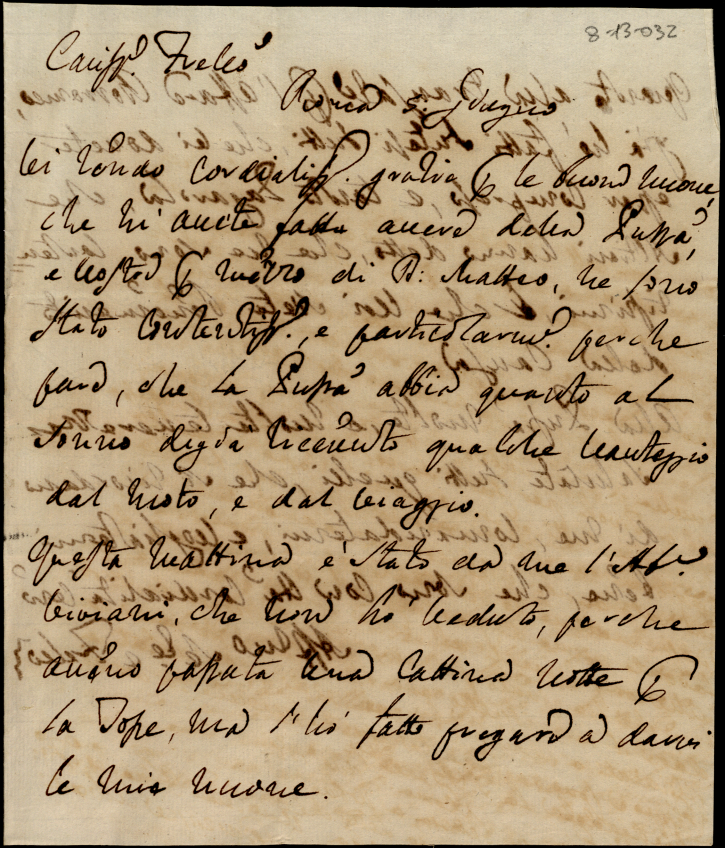 8-13-032
Cariss.º Frelo
Roma 5: Giugno
Vi rendo cordialiss.e grazie p le buone nuove,
che mi avete fatto avere della Puppa,
e vostre p mezzo di D: Matteo, ne sono
stato contentiss.º, e particolarm.e perche
pare, che la Puppa abbia quanto al
sonno di già ricevuto qualche vantaggio
dal moto, e dal viaggio.
Questa mattina è stato da me l'Ab.e
Viviani, che non hò veduto, perche
avevo passata una cattiva notte p
la Tosse, ma l'hò fatto pregare a darvi
le mie nuove.